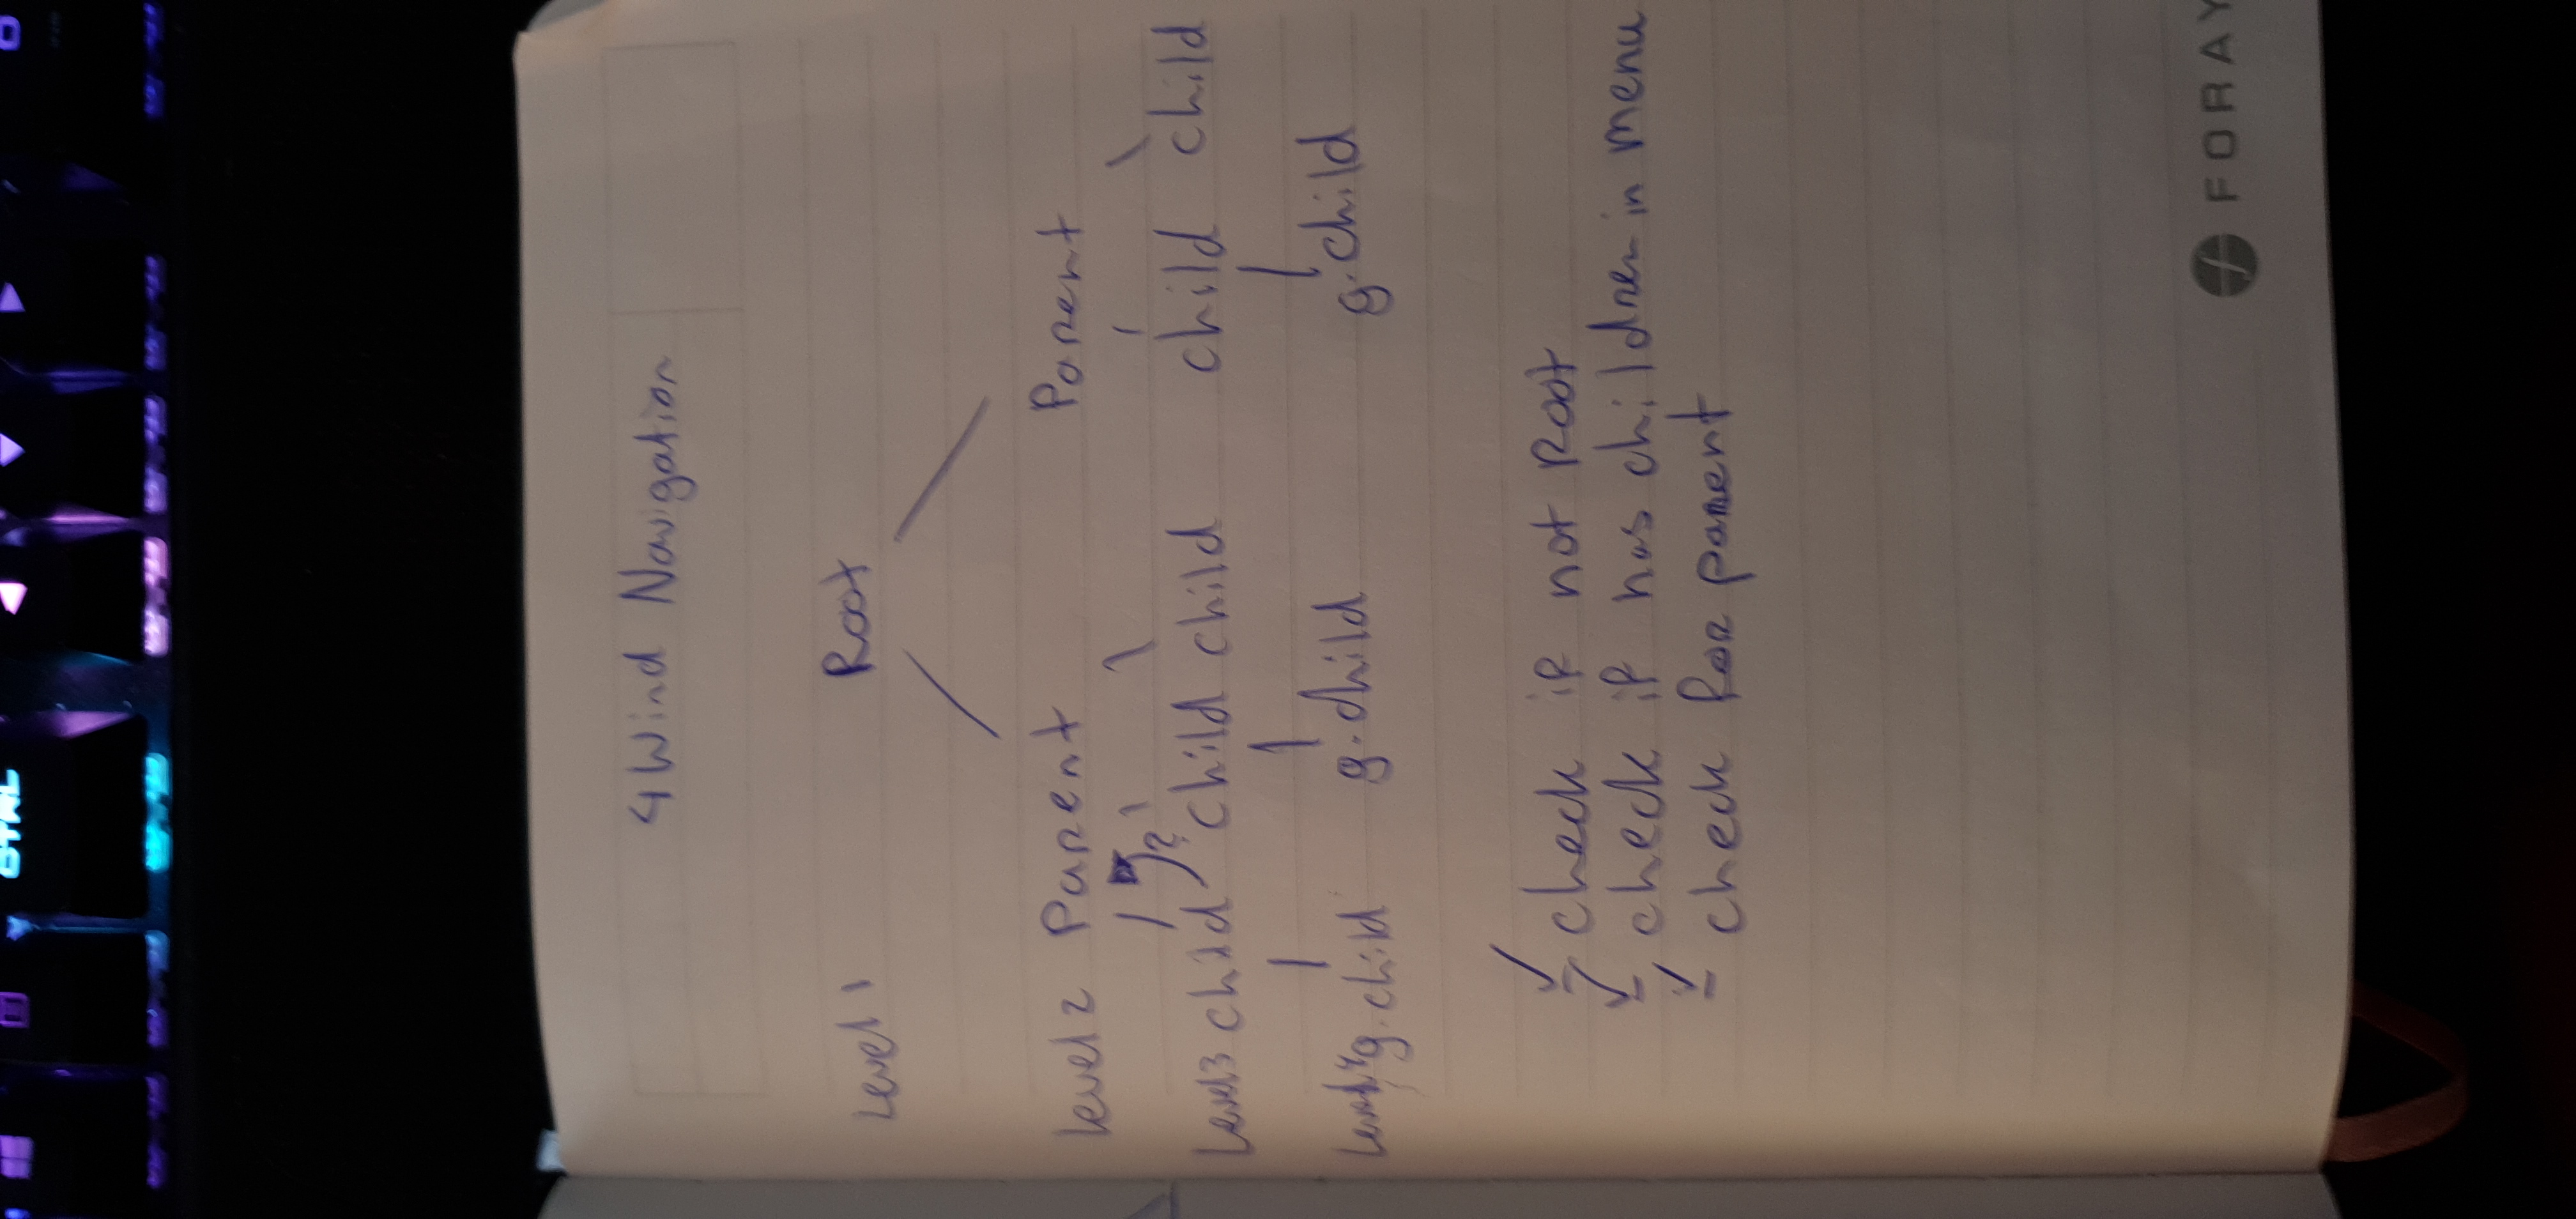 4Wind Navigation
Level 1 Root
Level 2 Parent Parent
Level 3 child child child child child
Level 4 g.child g.child g.child
check if not Root
check if has children in menu
check for parent
FORAY
CTRL